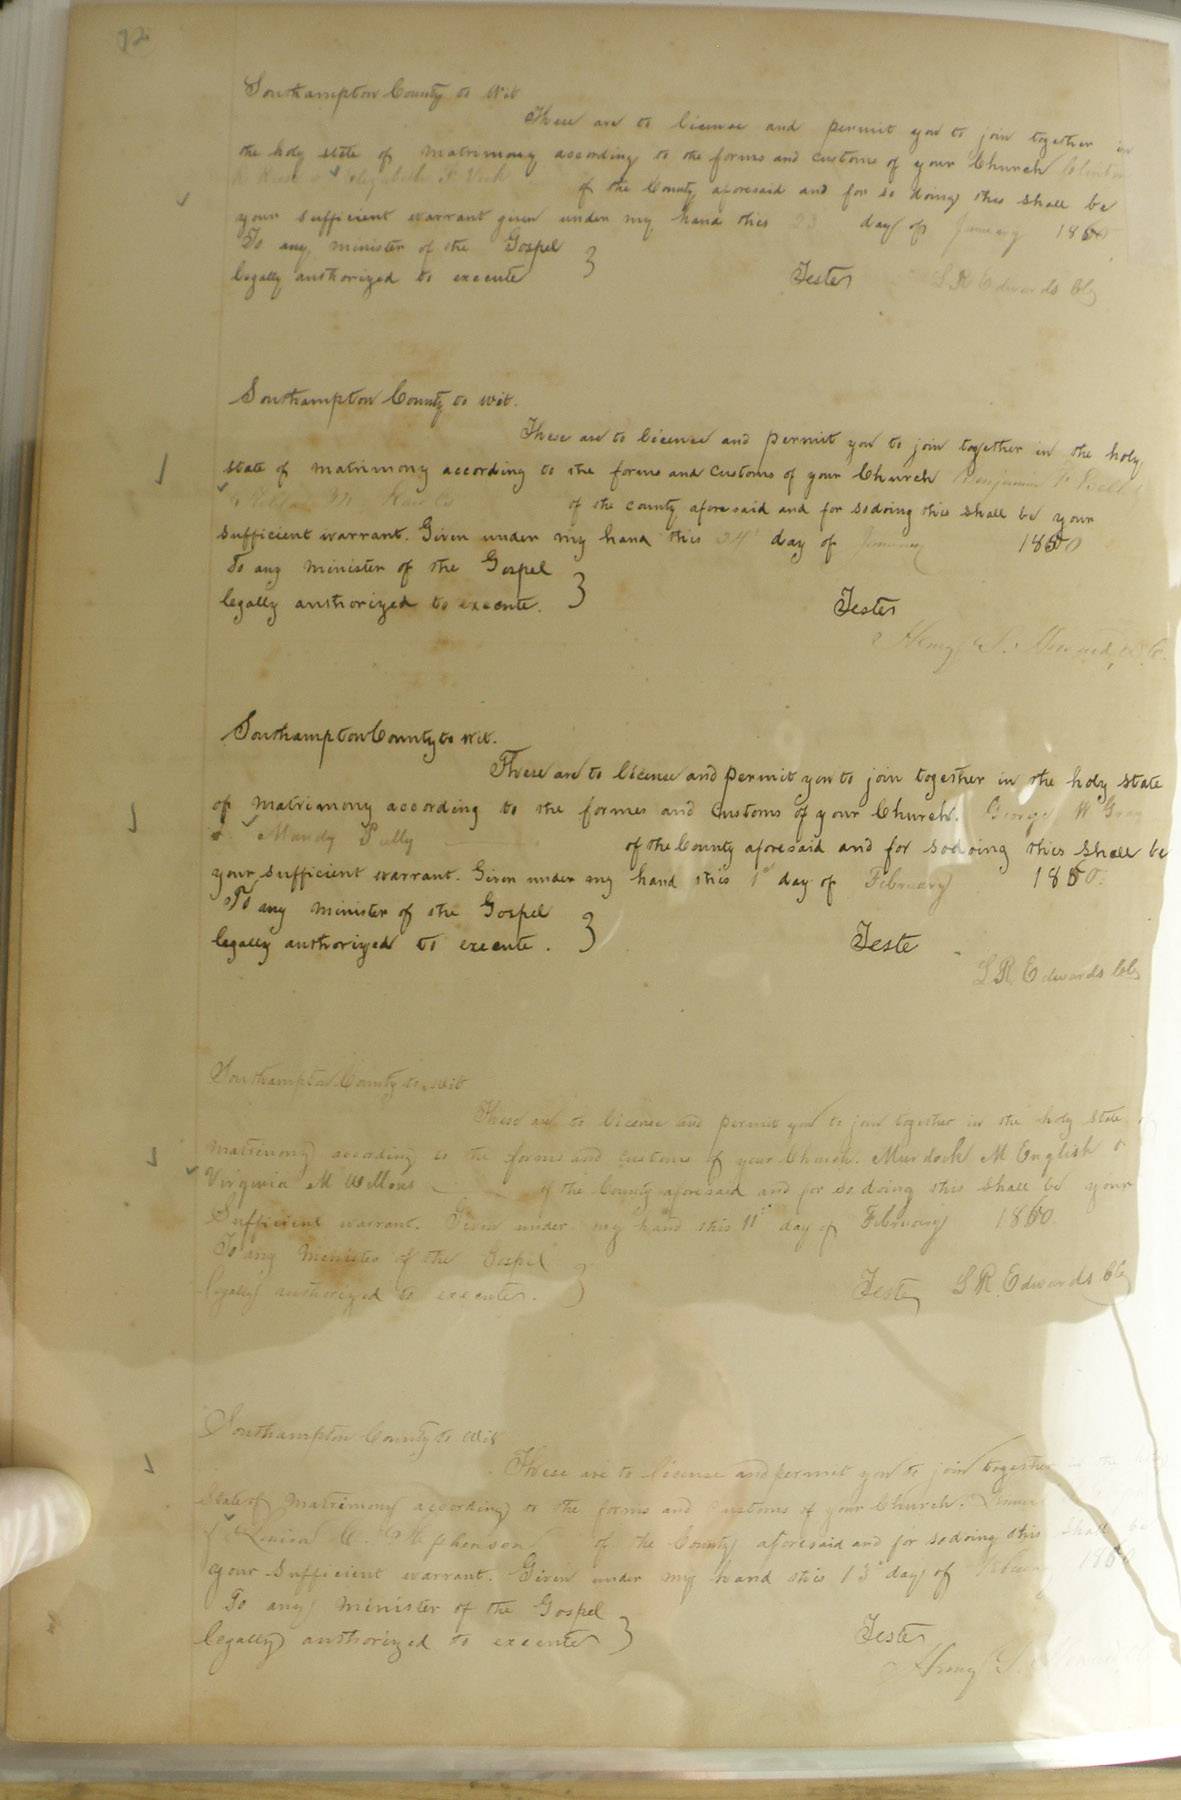 92
Southampton County to Wit
These are to license and permit you to join together in
the holy state of matrimony according to the forms and customs of your Church Clinton
& Elizabeth of the County aforesaid and for so doing this shall be
your sufficient warrant given under my hand this 23 day of January 1860
To any minister of the Gospel
legally authorized to execute } Teste L R Edwards Clk
Southampton County to wit.
These are to licence and permit you to join together in the holy
state of matrimony according to the forms and customs of your Church Benjamin F Bell
& of the county aforesaid and for so doing this shall be your
sufficient warrant. Given under my hand this 24 day of January 1860
To any minister of the Gospel
legally authorized to execute. } Teste
Henry S.
Southampton County to wit.
These are to license and permit you to join together in the holy state
of matrimony according to the formes and customs of your Church. George W Gray
& Mandy of the County aforesaid and for so doing this shall be
your sufficient warrant. Given under my hand this 1st day of February 1860.
To any minister of the Gospel
legally authorized to execute. } Teste
L R Edwards Clk
Southampton County to wit
These are to licence and permit you to join together in the holy state of
matrimony according to the forms and customs of your Church. Murdock M English &
Virginia M of the County aforesaid and for so doing this shall be your
Sufficient warrant. Given under my hand this 11th day of February 1860.
To any minister of the Gospel
legally authorized to execute. } Teste L R. Edwards Clk
Southampton County to wit
These are to license and permit you to join together in the holy
state of matrimony according to the forms and customs of your Church.
& Louisa C. Stephenson of the County aforesaid and for so doing this shall be
your sufficient warrant. Given under my hand this 13 day of 1860
To any minister of the Gospel
legally authorized to execute } Teste
Henry S.